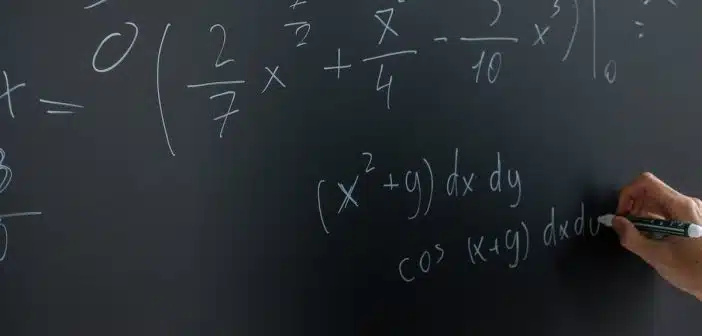 x = 0 ( 2/7 x^7/2 + x^/4 - 3/10 x^5 ) |_0 =
(x² + y) dx dy
cos (x+y) dx dy